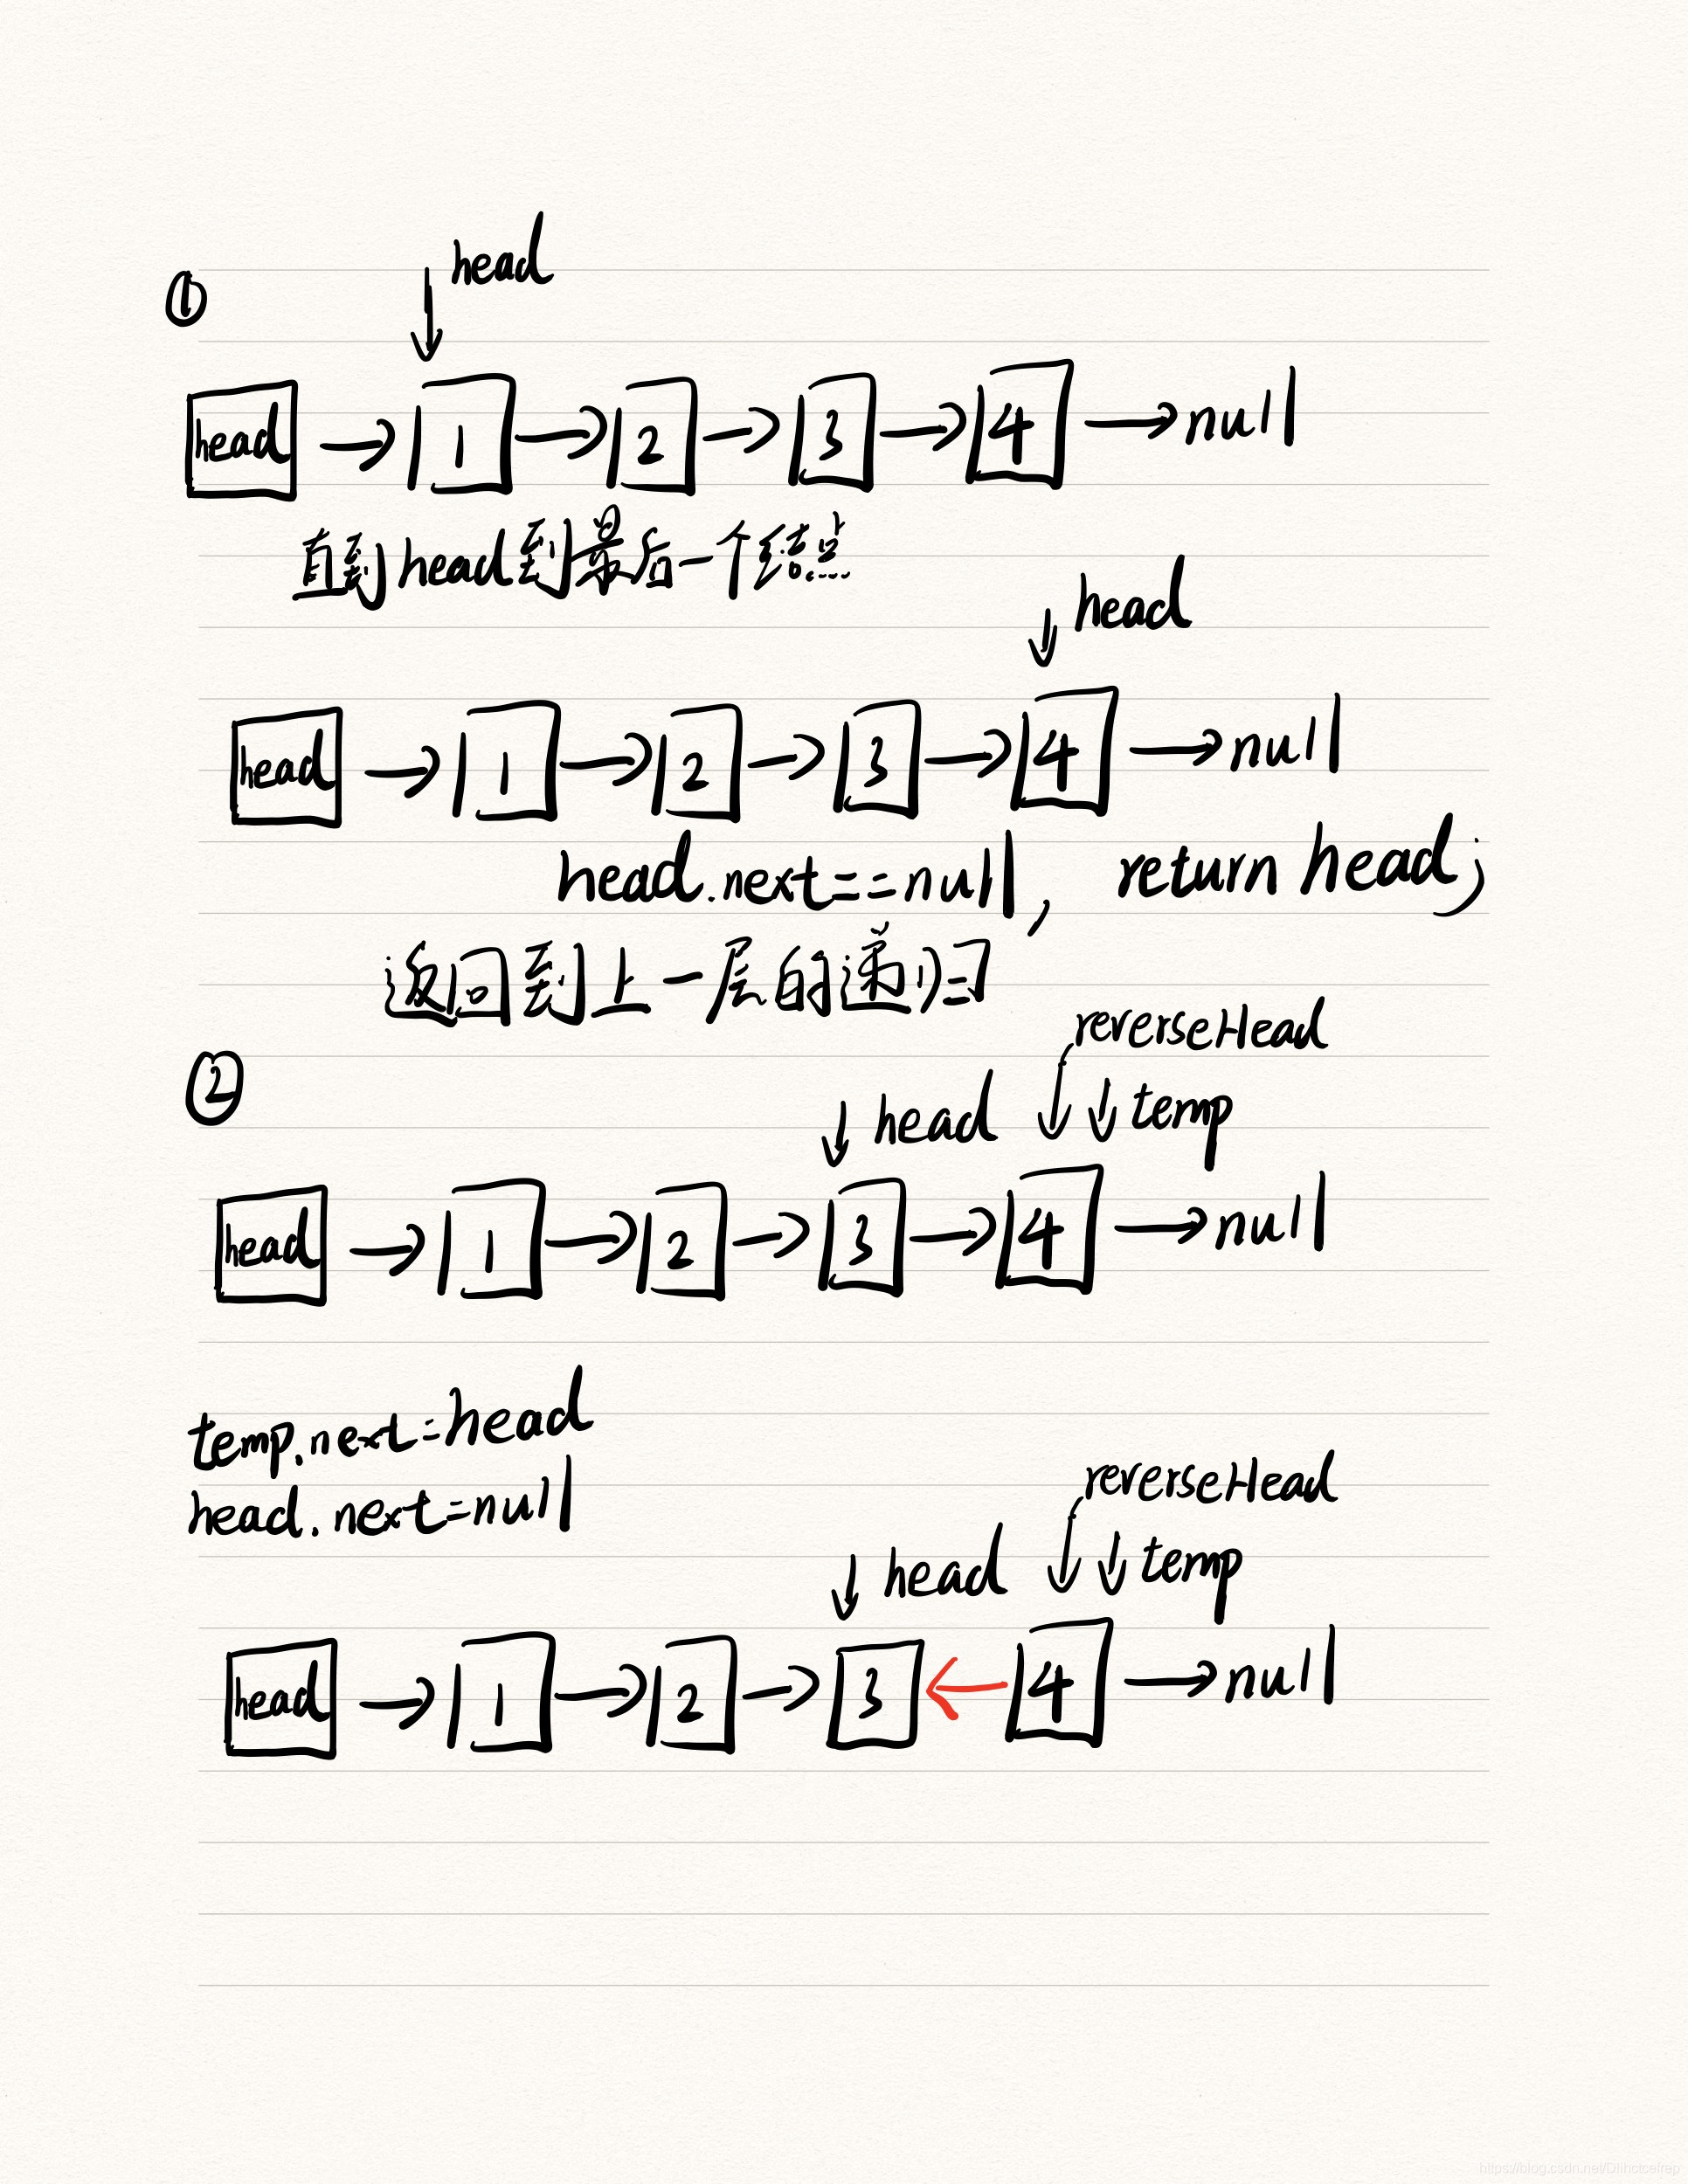 ①
head
head → 1 → 2 → 3 → 4 → null
直到head到最后一个结点
head
head → 1 → 2 → 3 → 4 → null
head.next==null, return head;
返回到上一层的递归
reverseHead
②
head temp
head → 1 → 2 → 3 → 4 → null
temp.next=head
head.next=null
reverseHead
head temp
head → 1 → 2 → 3 ← 4 → null
https://blog.csdn.net/Dlihctcefrep